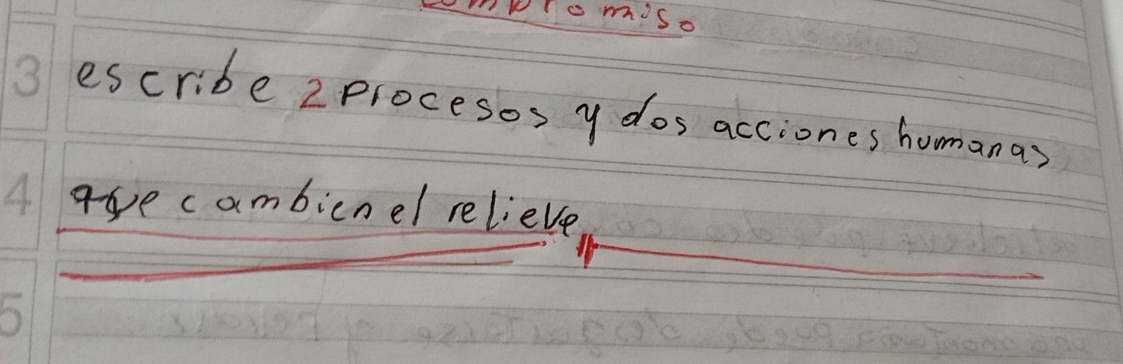 compromiso
3 escribe 2 procesos y dos acciones humanas
4 que cambien el relieve
5